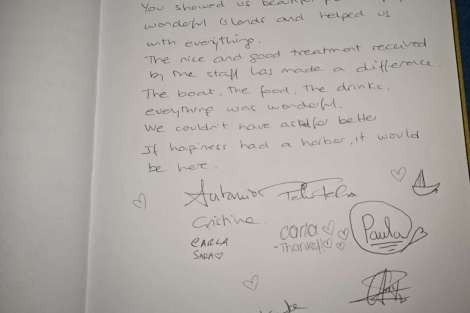 You showed us beautiful
wonderful islands and helped us
with everything.
The nice and good treatment received
by the staff has made a difference.
The boat, the food, the drinks,
everything was wonderful.
We couldn't have asked for better
If hapiness had a harbor, it would
be here.
Cristina
Carla
Paula
CARLA
SARA